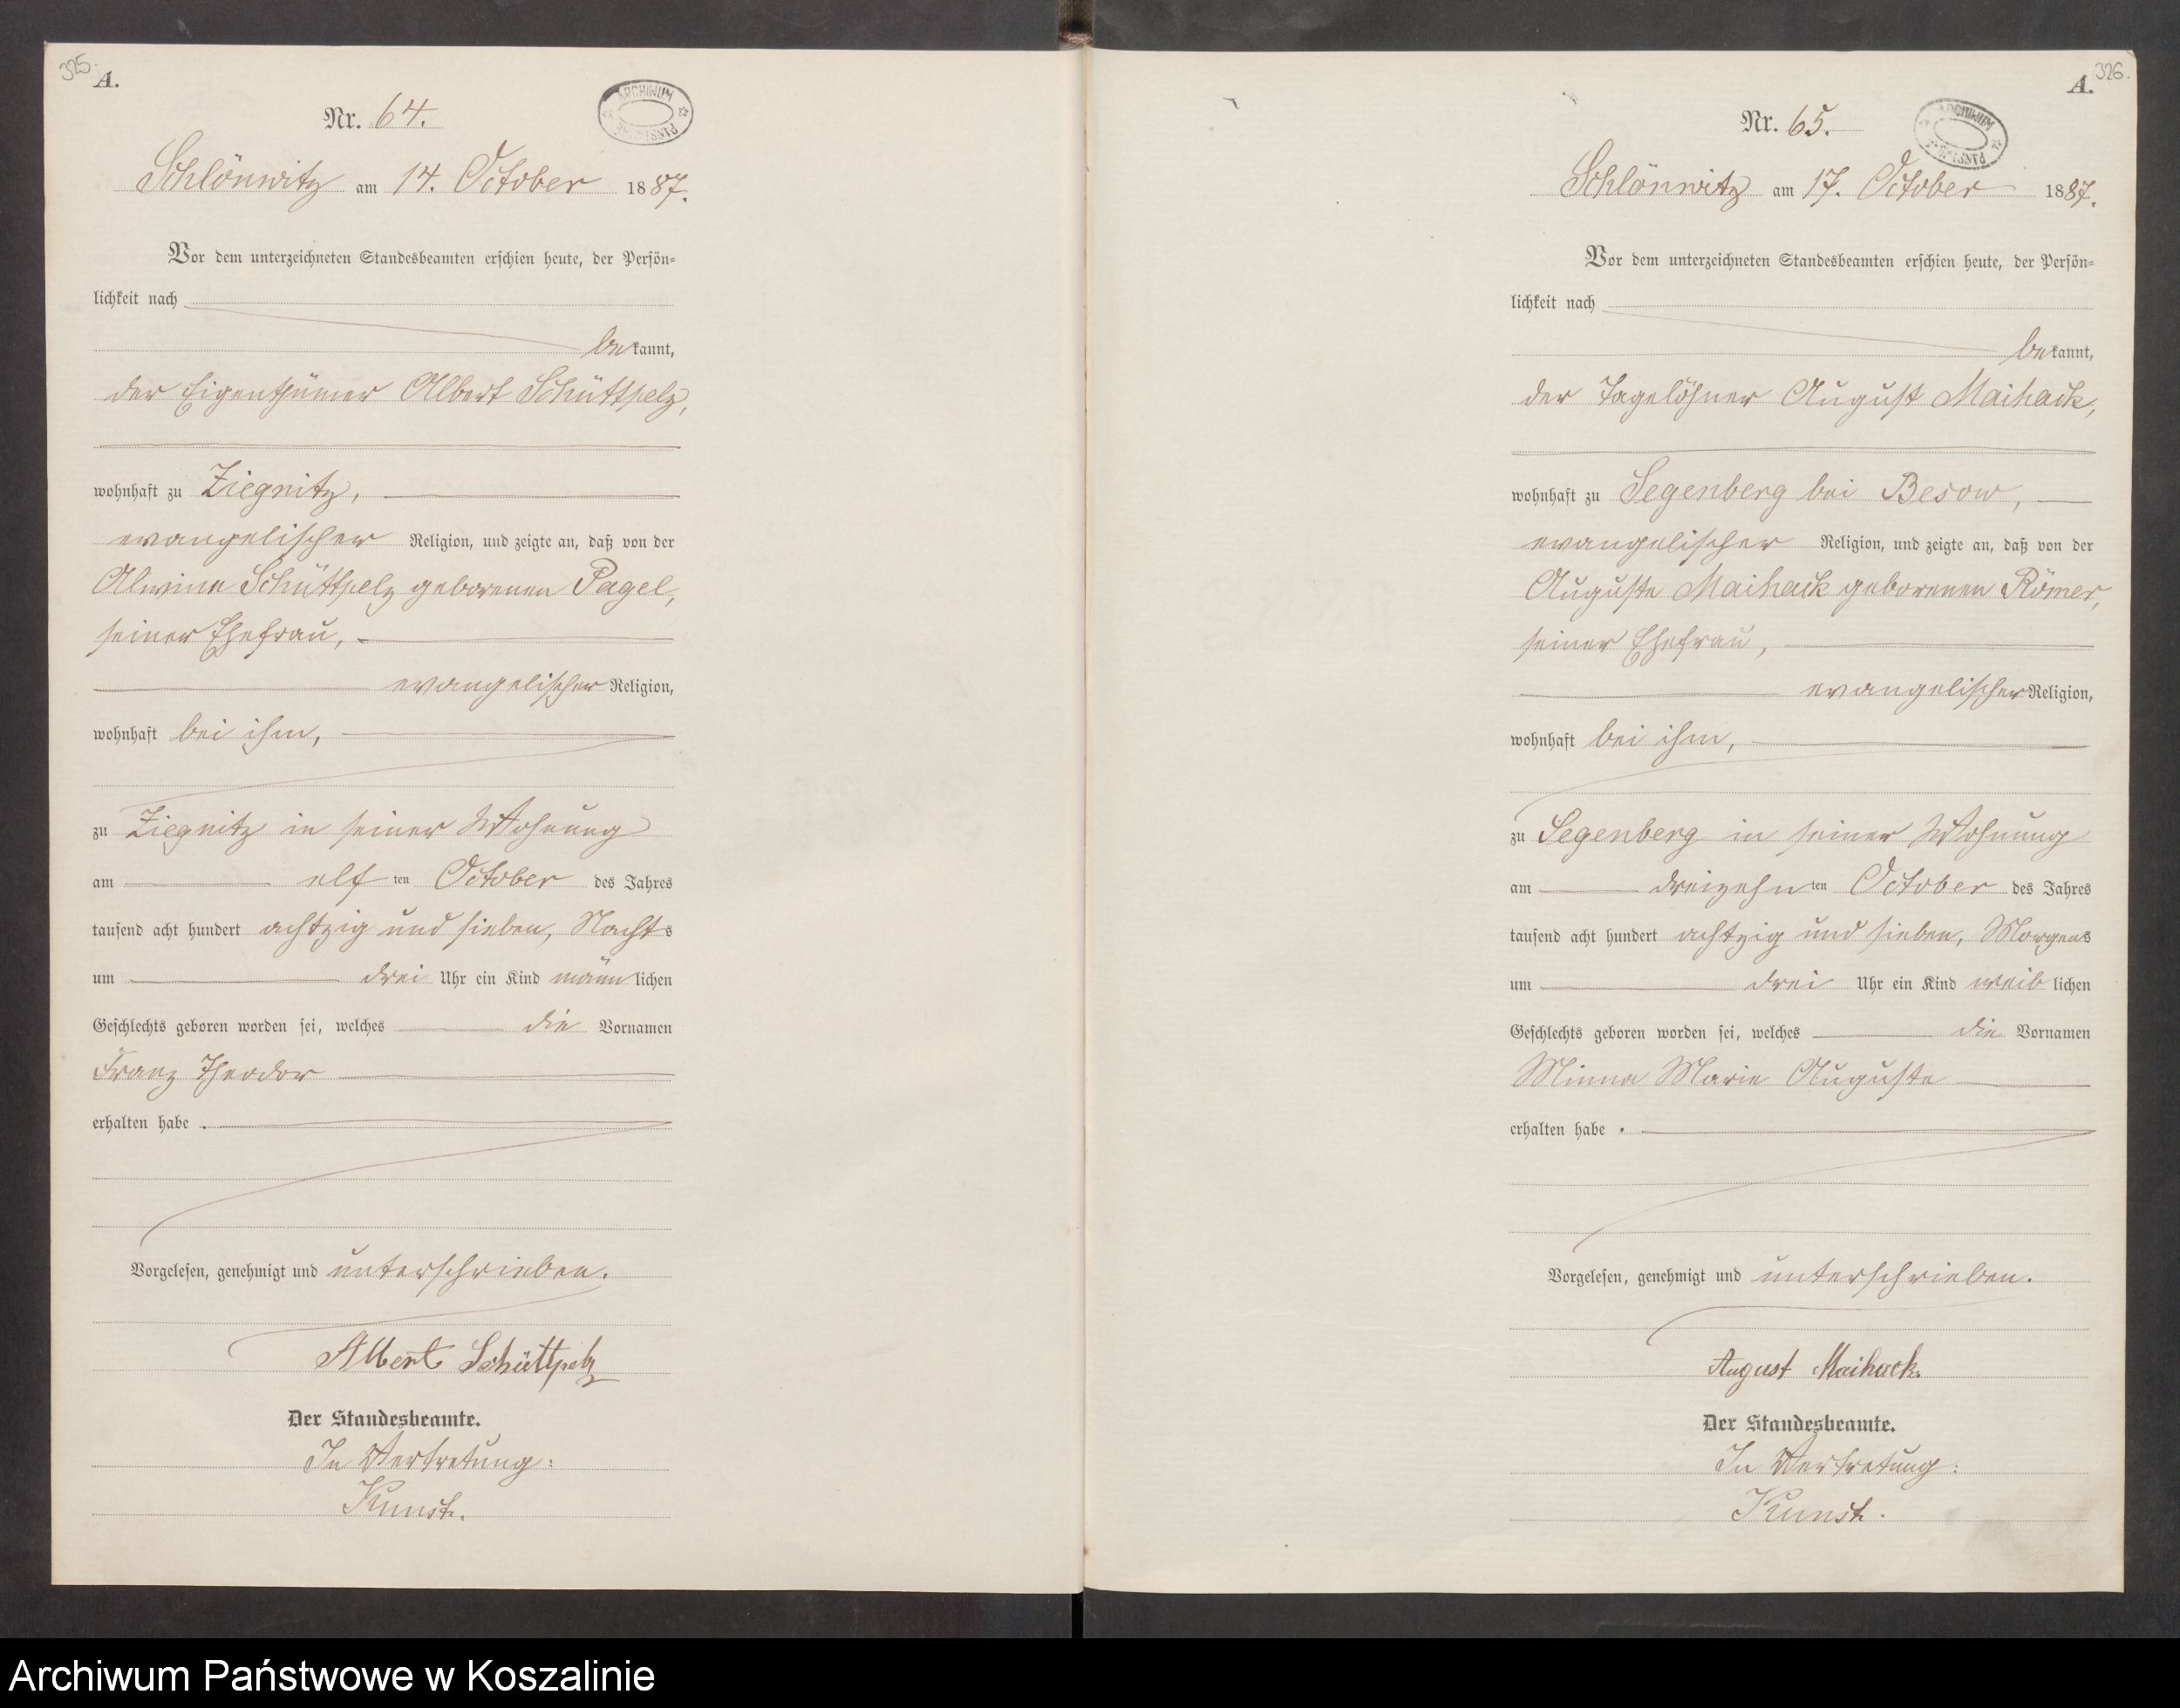 325.
A.
ARCHIWUM
PAŃSTWOWE
Nr. 64.
Schlönwitz am 14. October 1887.
Vor dem unterzeichneten Standesbeamten erschien heute, der Persön-
lichkeit nach
bekannt,
der Eigenthümer Albert Schüttpelz,
wohnhaft zu Ziegnitz,
evangelischer Religion, und zeigte an, daß von der
Alwine Schüttpelz geborenen Pagel,
seiner Ehefrau,
evangelischer Religion,
wohnhaft bei ihm,
zu Ziegnitz in seiner Wohnung
am elften October des Jahres
tausend acht hundert achtzig und sieben, Nachts
um drei Uhr ein Kind männlichen
Geschlechts geboren worden sei, welches die Vornamen
Franz Theodor
erhalten habe.
Vorgelesen, genehmigt und unterschrieben.
Albert Schüttpelz
Der Standesbeamte.
In Vertretung:
Kunst.
326.
A.
ARCHIWUM
Nr. 65.
Schlönwitz am 17. October 1887.
Vor dem unterzeichneten Standesbeamten erschien heute, der Persön-
lichkeit nach
bekannt,
der Tagelöhner August Maihack,
wohnhaft zu Segenberg bei Besow,
evangelischer Religion, und zeigte an, daß von der
Auguste Maihack geborenen Römer,
seiner Ehefrau,
evangelischer Religion,
wohnhaft bei ihm,
zu Segenberg in seiner Wohnung
am dreizehnten October des Jahres
tausend acht hundert achtzig und sieben, Morgens
um drei Uhr ein Kind weiblichen
Geschlechts geboren worden sei, welches die Vornamen
Minna Marie Auguste
erhalten habe.
Vorgelesen, genehmigt und unterschrieben.
August Maihack.
Der Standesbeamte.
In Vertretung:
Kunst.
Archiwum Państwowe w Koszalinie